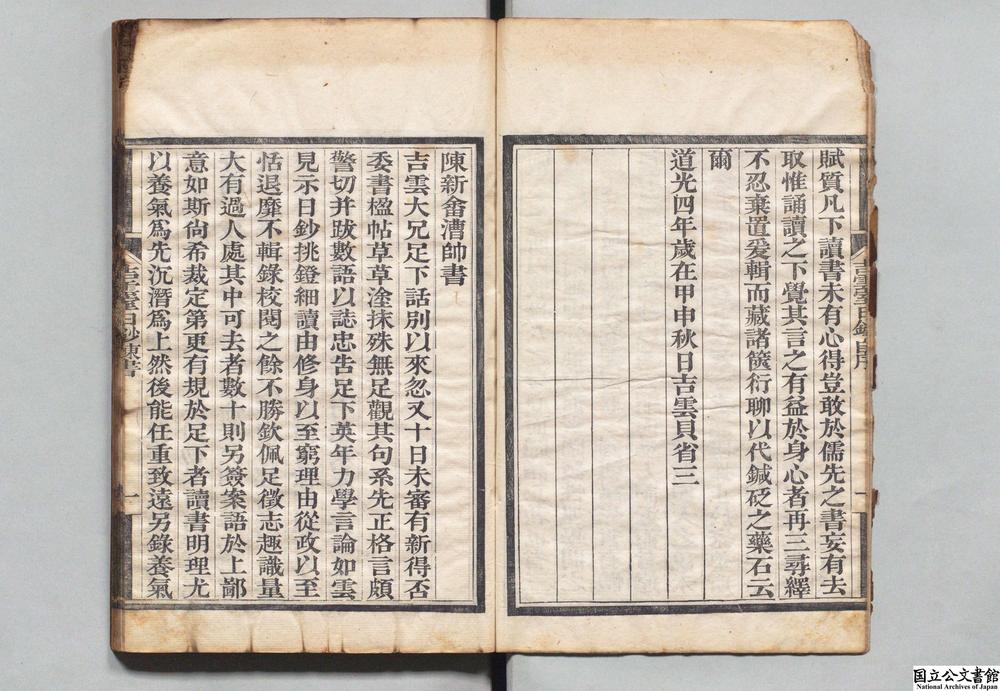 賦質凡下讀書未有心得豈敢於儒先之書妄有去
取惟誦讀之下覺其言之有益於身心者再三尋繹
不忍棄置爰輯而藏諸篋衍聊以代鍼砭之藥石云
爾
道光四年歲在甲申秋日吉雲貝省三
陳新畬漕帥書
吉雲大兄足下話別以來忽又十日未審有新得否
委書楹帖草草塗抹殊無足觀其句系先正格言頗
警切并跋數語以誌忠告足下英年力學言論如雲
見示日鈔挑鐙細讀由修身以至窮理由從政以至
恬退靡不輯錄校閱之餘不勝欽佩足徵志趣識量
大有過人處其中可去者數十則另簽案語於上鄙
意如斯尙希裁定第更有規於足下者讀書明理尤
以養氣爲先沉潛爲上然後能任重致遠另錄養氣
日鈔
陳書
一
国立公文書館
National Archives of Japan